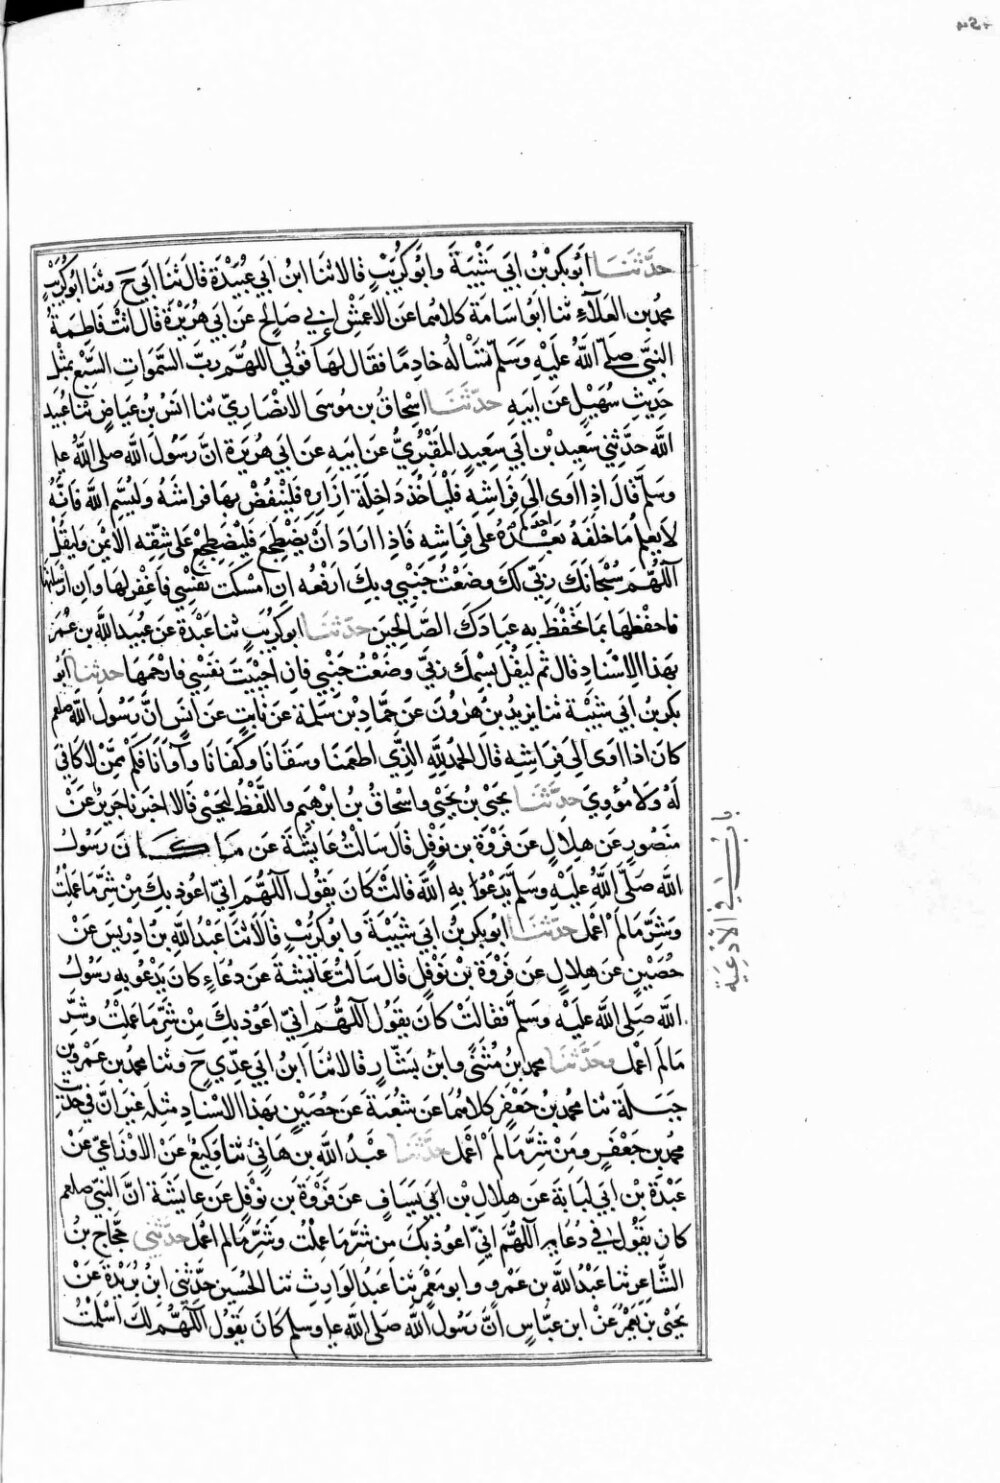 حدثنا أبو بكر بن أبي شيبة وأبو كريب قالا ثنا ابن أبي عبيدة قال ثنا أبي ح وثنا أبو كريب
محمد بن العلاء ثنا أبو أسامة كلاهما عن الأعمش أبي صالح عن أبي هريرة قال أتت فاطمة
النبي صلى الله عليه وسلم تسأله خادما فقال لها قولي اللهم رب السموات السبع بمثل
حديث سهيل عن أبيه حدثنا إسحاق بن موسى الأنصاري ثنا أنس بن عياض ثنا عبيد
الله حدثني سعيد بن أبي سعيد المقبري عن أبيه عن أبي هريرة أن رسول الله صلى الله عليه
وسلم قال إذا أوى إلى فراشه فليأخذ داخلة إزاره فلينفض بها فراشه وليسم الله فإنه
لا يعلم ما خلفه بعده على فراشه فإذا أراد أن يضطجع فليضطجع على شقه الأيمن وليقل
أحدكم
اللهم سبحانك ربي لك وضعت جنبي وبك أرفعه إن أمسكت نفسي فاغفر لها وإن أرسلتها
فاحفظها بما تحفظ به عبادك الصالحين حدثنا أبو كريب ثنا عبدة عن عبيد الله بن عمر
بهذا الإسناد قال ثم ليقل بسمك ربي وضعت جنبي فإن أحييت نفسي فارحمها حدثنا أبو
بكر بن أبي شيبة ثنا يزيد بن هرون عن حماد بن سلمة عن ثابت عن أنس أن رسول الله صلعم
كان إذا أوى إلى فراشه قال الحمد لله الذي أطعمنا وسقانا وكفانا وآوانا فكم ممن لا كافي
له ولا مؤوي حدثنا يحيى بن يحيى وإسحاق بن إبرهيم واللفظ ليحيى قالا أخبرنا جرير عن
منصور عن هلال عن فروة بن نوفل قال سألت عايشة عن ما كان رسول
الله صلى الله عليه وسلم يدعوا به الله قالت كان يقول اللهم إني أعوذ بك من شر ما عملت
وشر ما لم أعمل حدثنا أبو بكر بن أبي شيبة وأبو كريب قالا ثنا عبد الله بن إدريس عن
حصين عن هلال عن فروة بن نوفل قال سألت عايشة عن دعاء كان يدعو به رسول
الله صلى الله عليه وسلم فقالت كان يقول اللهم إني أعوذ بك من شر ما عملت وشر
ما لم أعمل وحدثنا محمد بن مثنى وابن بشار قالا ثنا ابن أبي عدي ح وثنا محمد بن عمرو بن
جبلة ثنا محمد بن جعفر كلاهما عن شعبة عن حصين بهذا الإسناد مثله غير أن في حديث
محمد بن جعفر ومن شر ما لم أعمل حدثنا عبد الله بن هاني ثنا وكيع عن الأوزاعي عن
عبدة بن أبي لبابة عن هلال بن أبي يساف عن فروة بن نوفل عن عايشة أن النبي صلعم
كان يقول في دعايه اللهم إني أعوذ بك من شر ما عملت وشر ما لم أعمل حدثني حجاج بن
الشاعر ثنا عبد الله بن عمرو وأبو معمر ثنا عبد الوارث ثنا الحسين حدثني ابن بريدة عن
يحيى بن يعمر عن ابن عباس أن رسول الله صلى الله عليه وسلم كان يقول اللهم لك أسلمت
باب في الأدعية